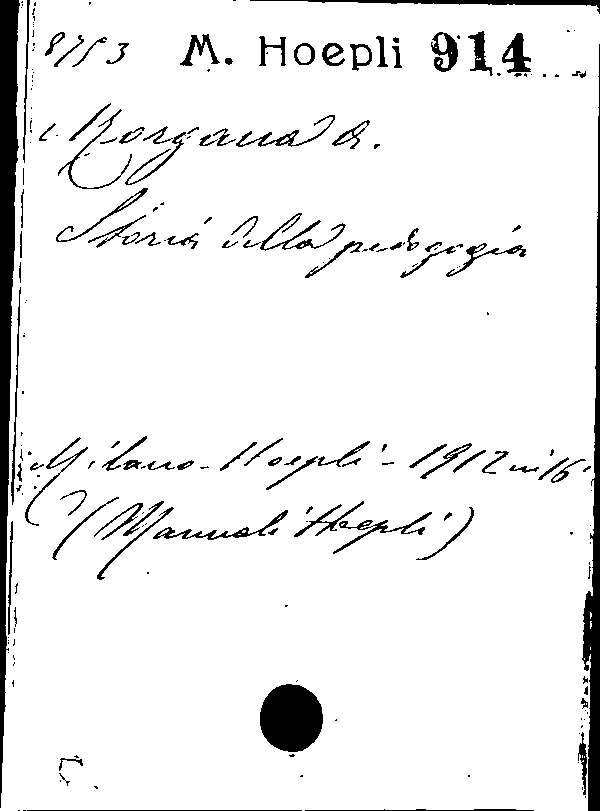 8753 M. Hoepli 914
Morgana G.
Storia della pedagogia
Milano - Hoepli - 1912 in 16°
(Manuali Hoepli)